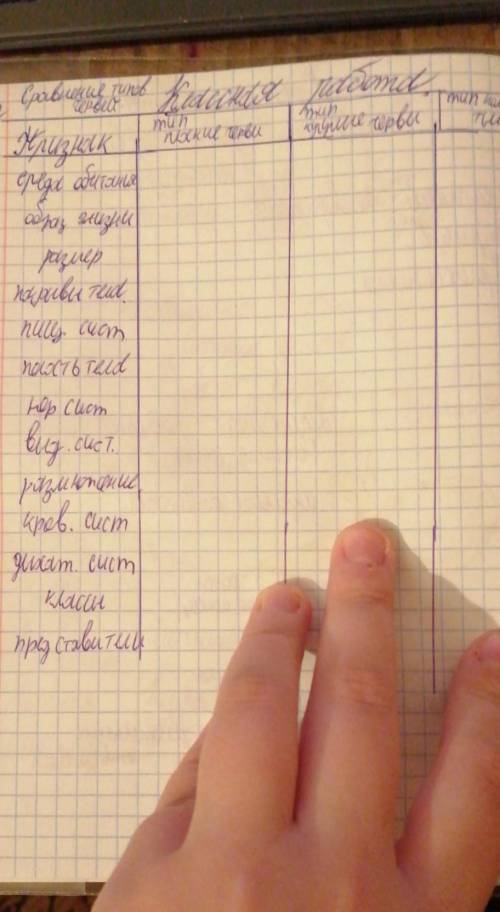 Сравнение типов червей
Классная работа.
Признак
тип плоские черви
тип круглые черви
тип
среда обитания
образ жизни
размер
покровы тела.
пищ. сист
полость тела
нер сист
выд. сист.
размножение
кров. сист
дыхат. сист
классы
представители